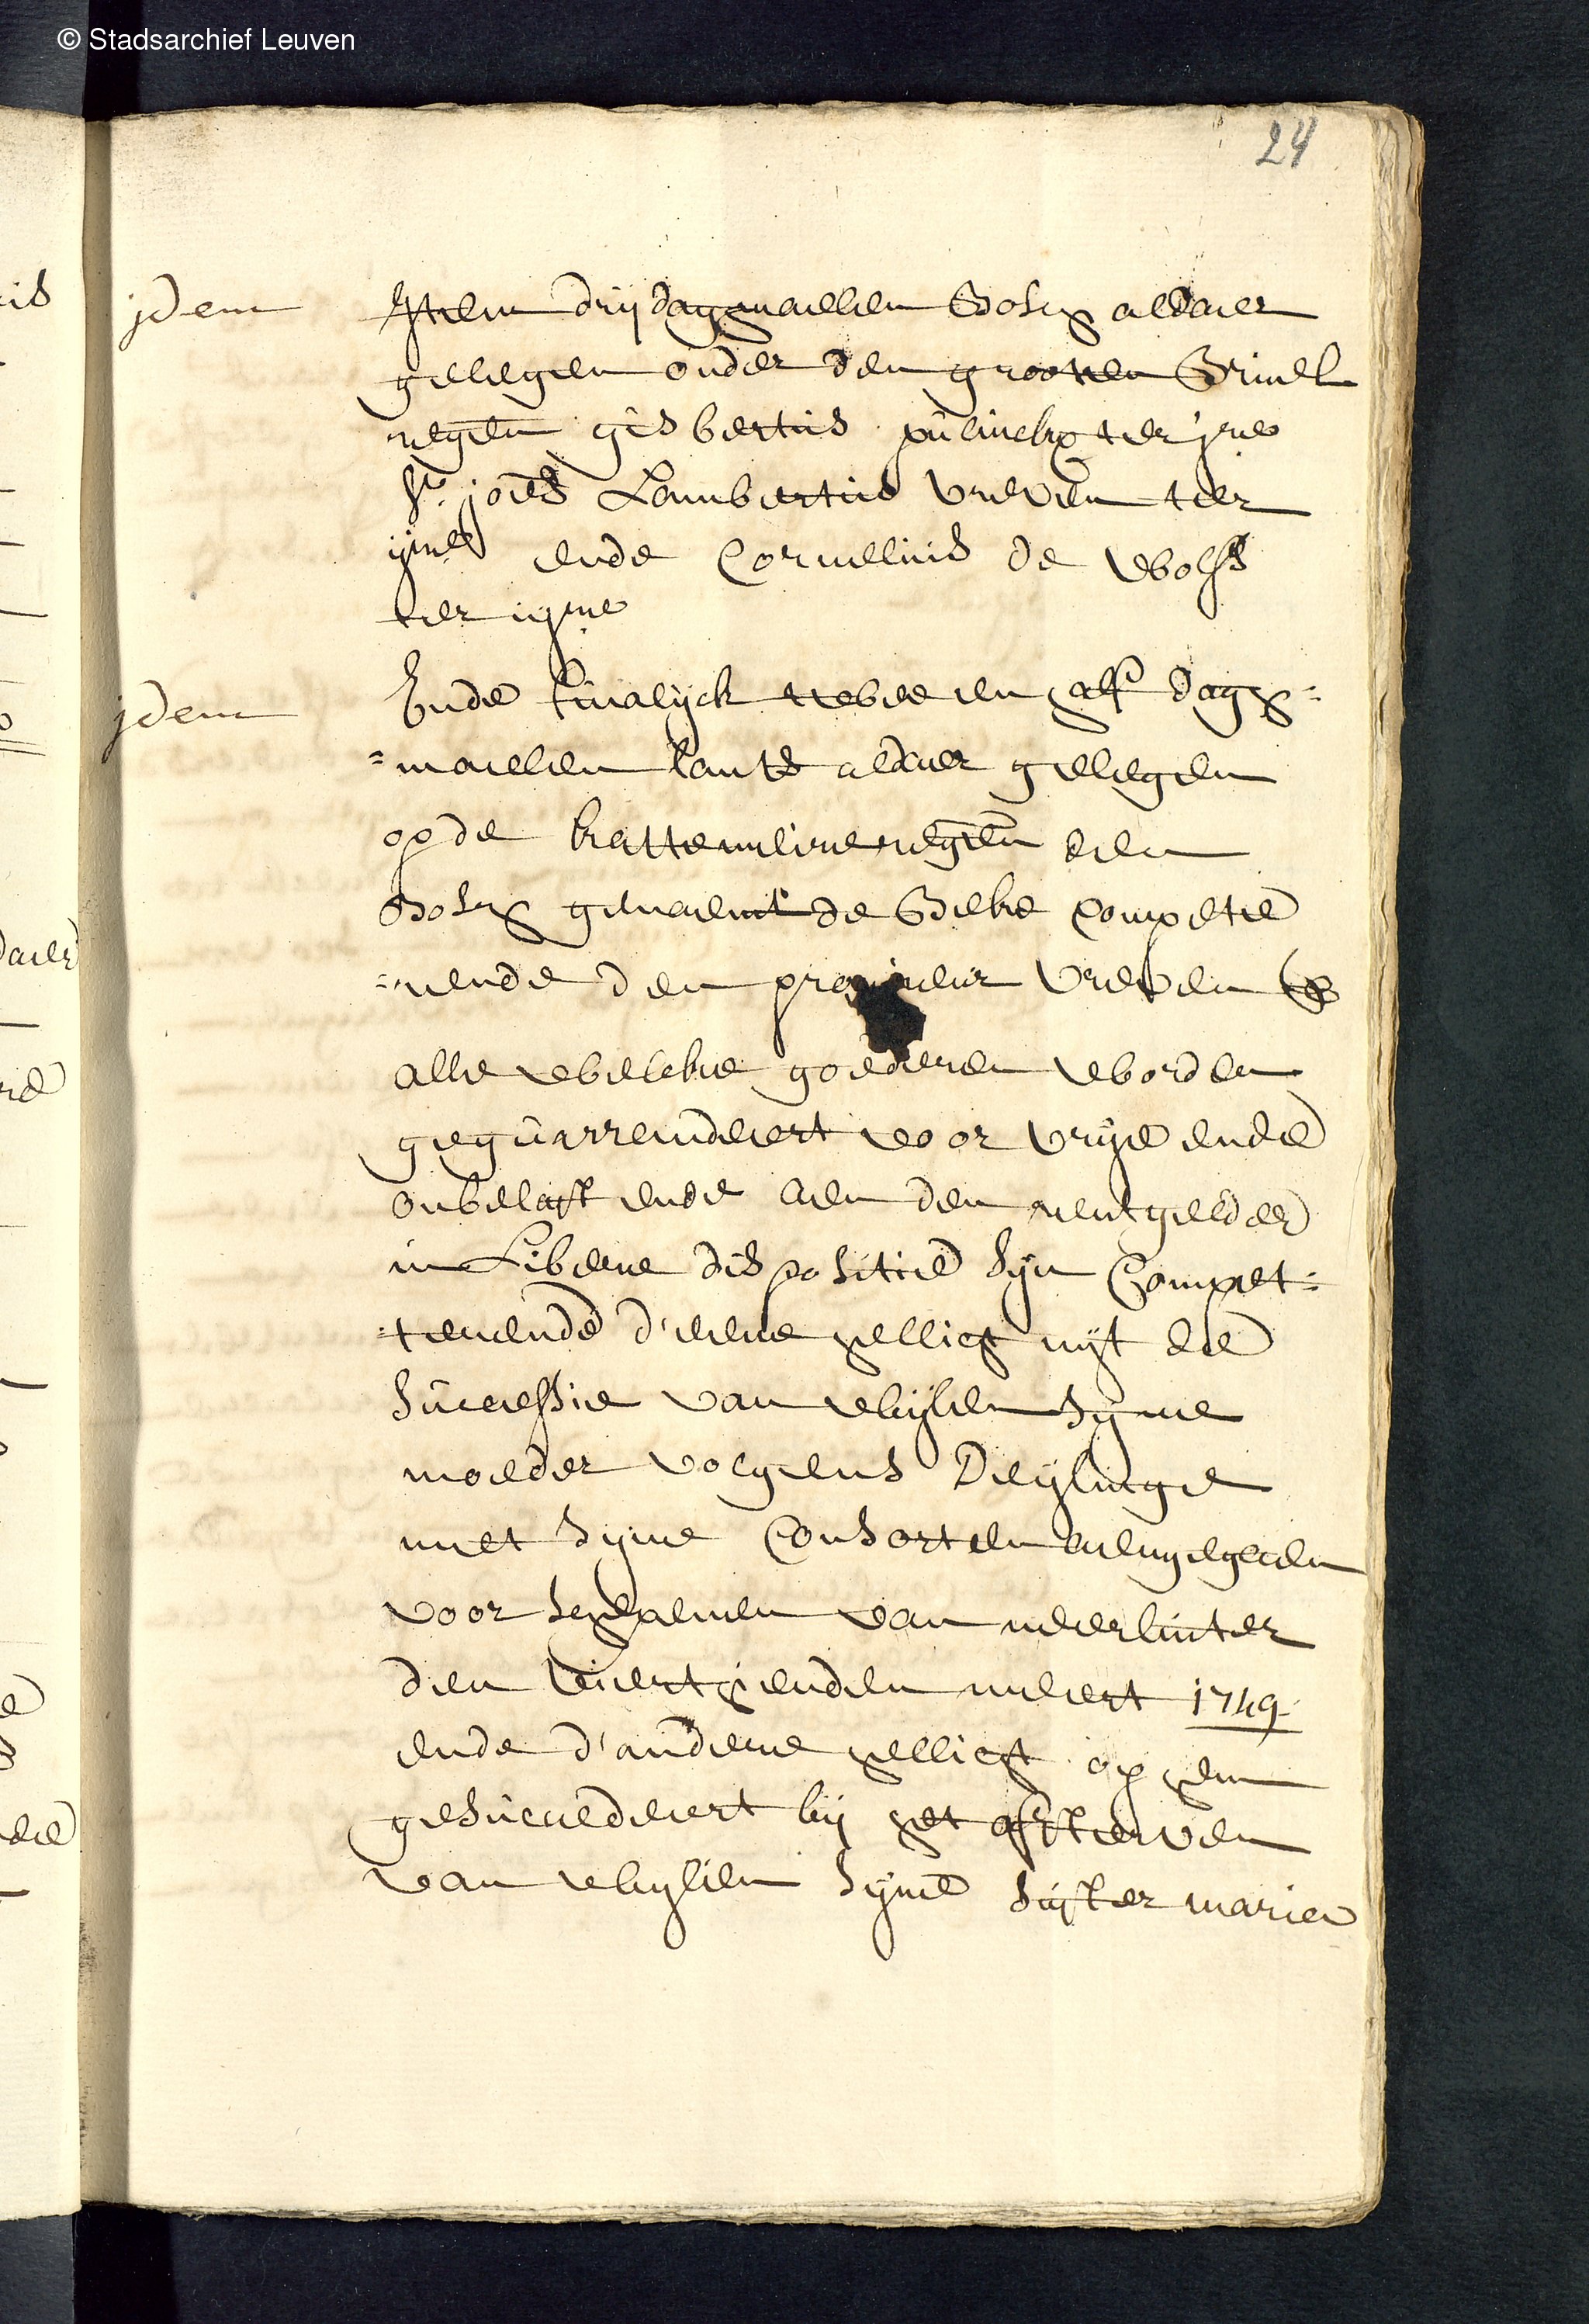 © Stadsarchief Leuven
24
jdem
Item drij daghmaelen Bosch aldaer
gelegen onder den grooten Bruel
regen gisbertus ter jre
Sr. joës Lambertus Vreven ter
ijre ende Cornelius de wolfs
ter iijre
jdem
Ende finalijck twee en half dagh=
=maelen lants aldaer gelegen
op de regen den
Bosch genaemt de Beke competee
=rende den Vreven
alle welcke goederen worden
geguarrendeert voor vrije ende
onbelast ende aen den rentgelder
in Libere dispositie sijn Compet=
=terende d'eene hellicht uijt de
Successie van wijlen syne
moeder volgens Deylinge
met syne Consorten aengegaen
voor schepenen van neerlinter
den viertienden meert 1749
ende d'andere hellicht op hem
gesuccedeert bij het afsterven
van wylen syne suster marie